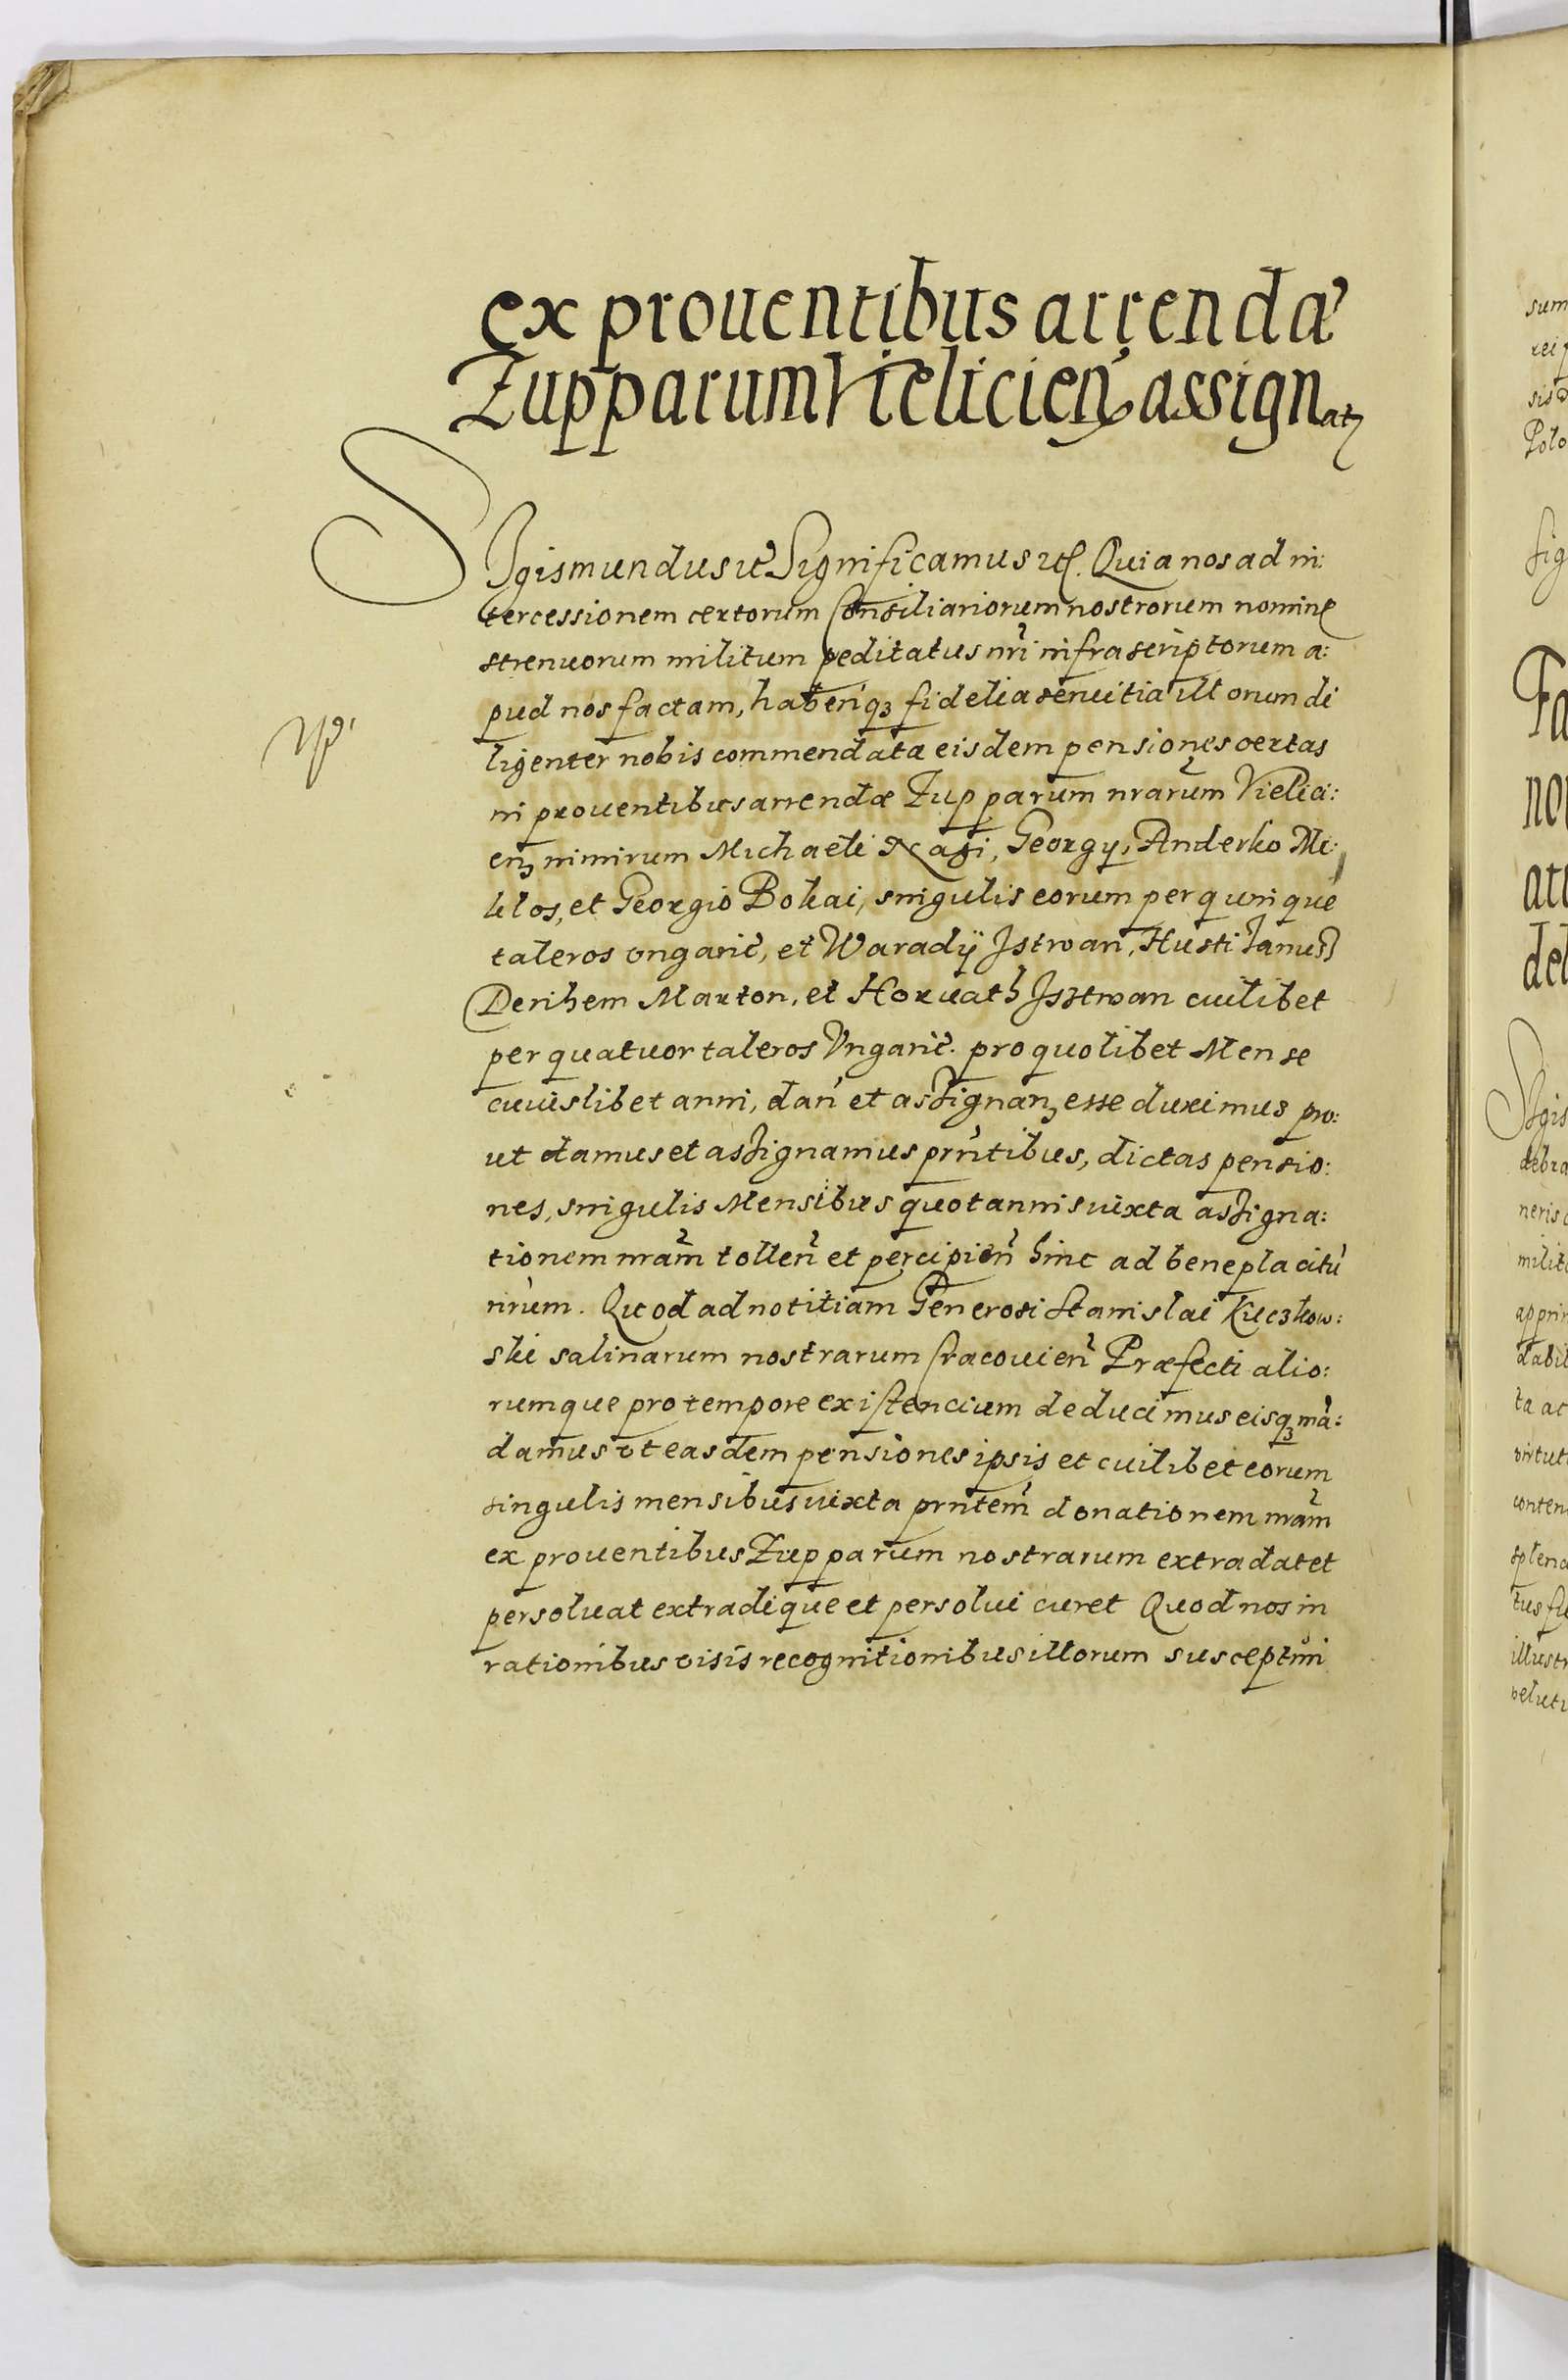 ex prouentibus arrendæ
Zupparum Vielicien̄ assignatȝ
Sigismundus etc̄ Significamus etc. Quia nos ad in:
tercessionem certorum Consiliariorum nostrorum nomine
strenuorum militum peditatus nr̄i infrascriptorum a:
pud nos factam, haben̄qȝ fidelia seruitia illorum di
ligenter nobis commendata eisdem pensiones certas
in prouentibus arrendæ Zupparum nr̄arum Vielici:
enȝ nimirum Michaeli Nagi, Georgy, Anderko Mi:
klos, et Georgio Bokai, singulis eorum per quinque
taleros ongaric̄, et Waradÿ Jstwan, Husti Janusz
Derihem Marton, et Horuath Jsztwan cuilibet
per quatuor taleros Vngaric̄. pro quolibet Mense
cuiuslibet anni, dan̄ et assignanȝ esse duximus pro:
ut damus et assignamus prn̄tibus, dictas pensio:
nes, singulis Mensibus quotannis iuxta assigna:
tionem nr̄am tollen̄ et percipien̄ hinc ad beneplacitū
nr̄um. Quod ad notitiam Generosi Stanislai Kuczkow:
ski salinarum nostrarum Cracouien̄ Præfecti alio:
rumque pro tempore existencium deducimus eisqȝ mā:
damus vt easdem pensiones ipsis et cuilibet eorum
singulis mensibus iuxta prn̄tem donationem nr̄am
ex prouentibus Zupparum nostrarum extradat et
persoluat extradique et persolui curet Quod nos in
rationibus visis recognitionibus illorum suscepturi
sum
Polo
Fa
nou
atu
del
neris
milit
dabil
ta ac
virtut
conten
splend
tus fu
illustr
velut